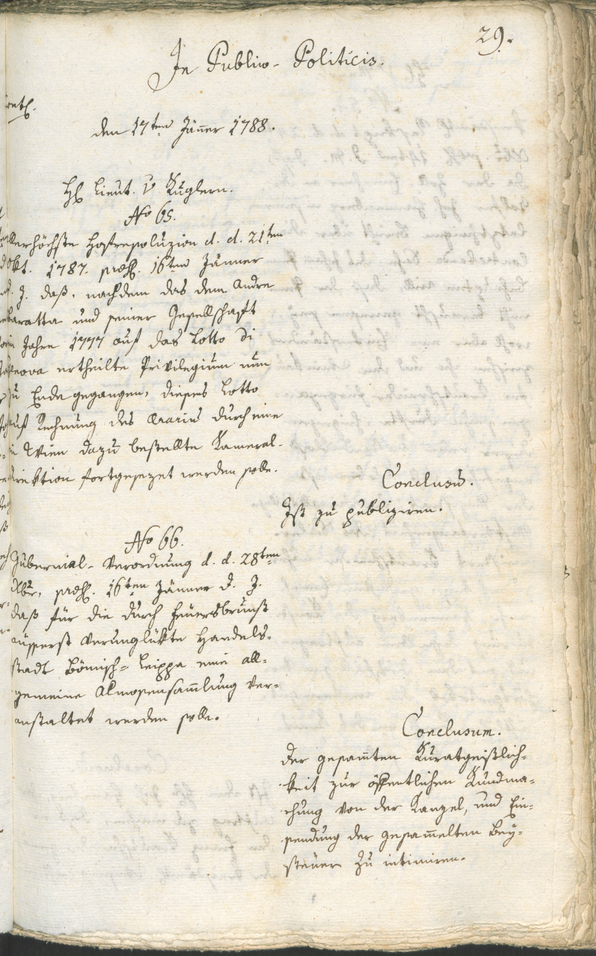 29.
In Publico-Politicis.
den 17ten Jäner 1788.
H. Lieut. v Kuglern.
No 65.
allerhöchste Hofresoluzion d. d. 21ten
8bt. 1787. präs. 16ten Jänner
d. J. daß, nachdem das dem Andre
Baratta und seiner Gesellschaft
Jahre 1777 auf das Lotto di
Genova ertheilte Privilegium nun
zu Ende gegangen, dieses Lotto
auf Rechnung des Ararius durch eine
in Wien dazu bestellte Kameral-
direktion fortgesezet werden solle.
Conclusũ.
Ist zu publiziren.
No 66.
Gubernial-Verordnung d. d. 28ten
Xbr, präs. 16ten Jänner d. J.
daß für die durch Feuersbrunst
äusserst verunglükte Handels-
stadt Bömisch-Leippa eine all-
gemeine Almosensammlung ver-
anstaltet werden solle.
Conclusum.
Der gesam̃ten Kuratgeistlich-
keit zur öffentlichen Kundma-
chung von der Kanzel, und Ein-
sendung der gesam̃elten Bey-
steuer zu intimiren.